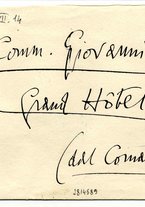 II. 14
Comm. Giovanni
Grand Hôtel
(dal Coma
2814589